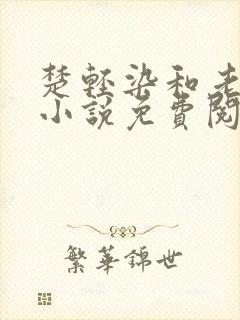 楚輕染和老
小說免費閱
繁華錦世